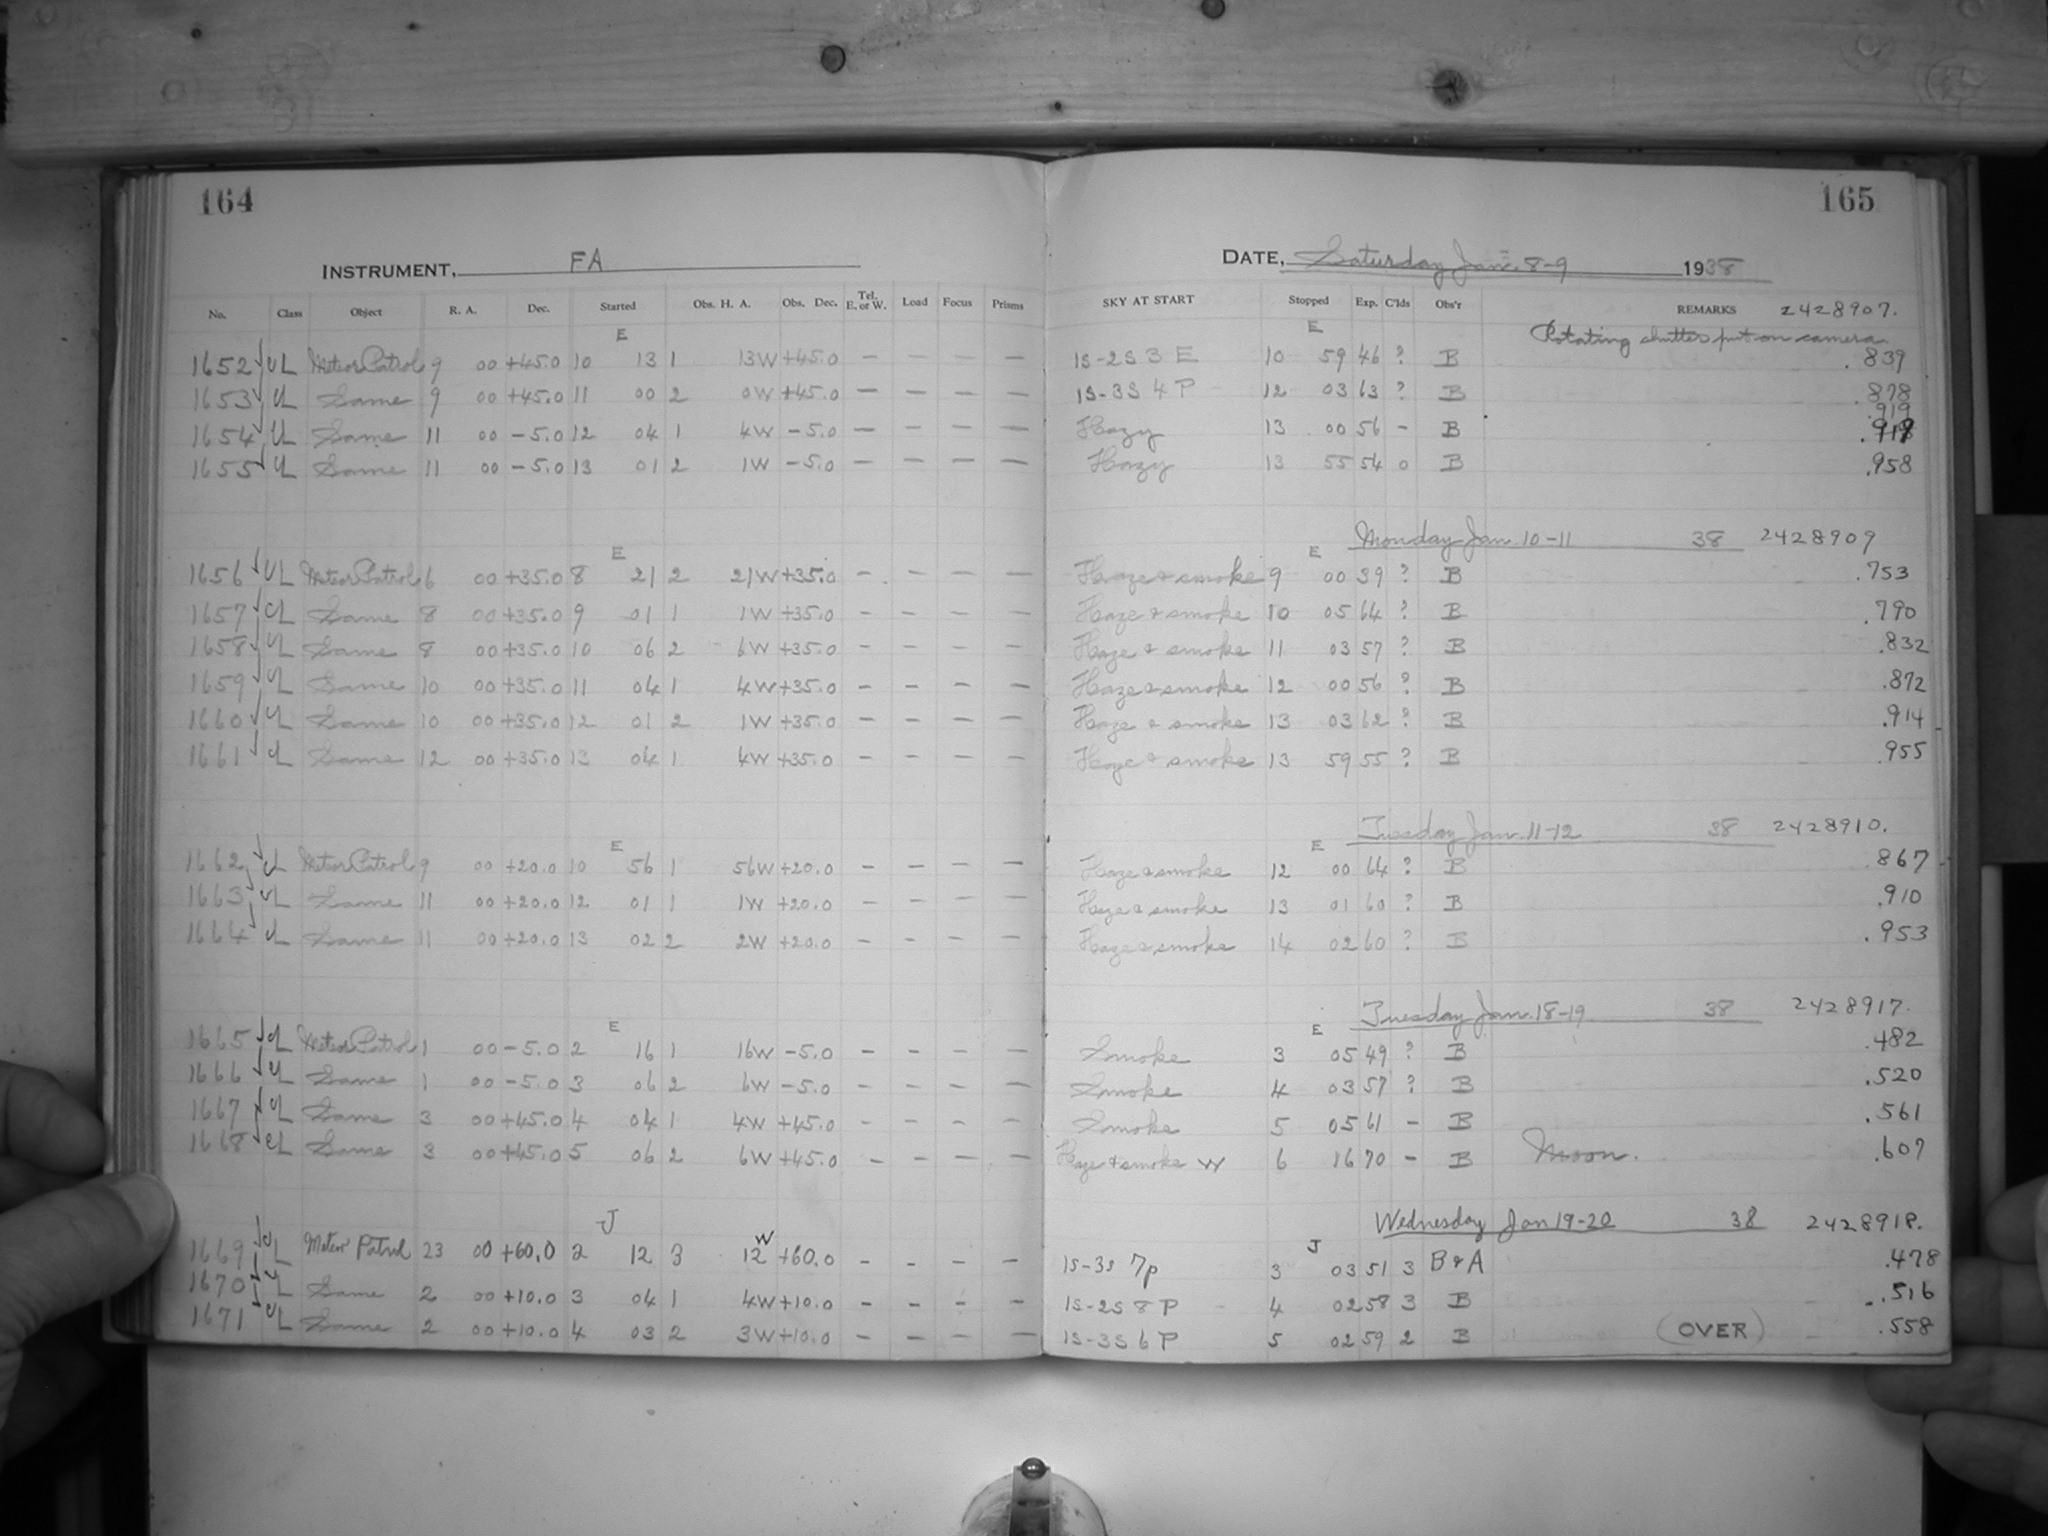 164
INSTRUMENT, FA
No. Class Object R. A. Dec. Started Obs. H. A. Obs. Dec. Tel. E. or W. Load Focus Prisms
E
1652 UL Meteor Patrol 9 00 +45.0 10 13 1 13W +45.0 – – – –
1653 UL Same 9 00 +45.0 11 00 2 0W +45.0 – – – –
1654 UL Same 11 00 -5.0 12 04 1 4W -5.0 – – – –
1655 UL Same 11 00 -5.0 13 01 2 1W -5.0 – – – –
E
1656 UL Meteor Patrol 6 00 +35.0 8 21 2 21W +35.0 – – – –
1657 UL Same 8 00 +35.0 9 01 1 1W +35.0 – – – –
1658 UL Same 8 00 +35.0 10 06 2 6W +35.0 – – – –
1659 UL Same 10 00 +35.0 11 04 1 4W +35.0 – – – –
1660 UL Same 10 00 +35.0 12 01 2 1W +35.0 – – – –
1661 UL Same 12 00 +35.0 13 04 1 4W +35.0 – – – –
E
1662 UL Meteor Patrol 9 00 +20.0 10 56 1 56W +20.0 – – – –
1663 UL Same 11 00 +20.0 12 01 1 1W +20.0 – – – –
1664 UL Same 11 00 +20.0 13 02 2 2W +20.0 – – – –
E
1665 UL Meteor Patrol 1 00 -5.0 2 16 1 16W -5.0 – – – –
1666 UL Same 1 00 -5.0 3 06 2 6W -5.0 – – – –
1667 UL Same 3 00 +45.0 4 04 1 4W +45.0 – – – –
1668 UL Same 3 00 +45.0 5 06 2 6W +45.0 – – – –
J
1669 UL Meteor Patrol 23 00 +60.0 2 12 3 12W +60.0 – – – –
1670 UL Same 2 00 +10.0 3 04 1 4W +10.0 – – – –
1671 UL Same 2 00 +10.0 4 03 2 3W +10.0 – – – –
165
DATE, Saturday Jan. 8-9 1938
SKY AT START Stopped Exp. C'lds Obs'r REMARKS 2428907.
E Rotating shutter put on camera
1S-2S 3 E 10 59 46 ? B .839
1S-3S 4 P 12 03 63 ? B .878
.919
Hazy 13 00 56 - B
Hazy 13 55 54 0 B .958
Monday Jan. 10-11 38 2428909
E
Haze & smoke 9 00 39 ? B .753
Haze & smoke 10 05 64 ? B .790
Haze & smoke 11 03 57 ? B .832
Haze & smoke 12 00 56 ? B .872
Haze & smoke 13 03 62 ? B .914
Haze & smoke 13 59 55 ? B .955
Tuesday Jan. 11-12 38 2428910.
E
Haze & smoke 12 00 64 ? B .867
Haze & smoke 13 01 60 ? B .910
Haze & smoke 14 02 60 ? B .953
Tuesday Jan. 18-19 38 2428917.
E
Smoke 3 05 49 ? B .482
Smoke 4 03 57 ? B .520
Smoke 5 05 61 - B .561
Haze & smoke W 6 16 70 - B Moon. .607
Wednesday Jan 19-20 38 2428918.
J
1S-3S 7p 3 03 51 3 B & A .478
1S-2S 8 P 4 02 58 3 B .516
1S-3S 6 P 5 02 59 2 B (OVER) .558